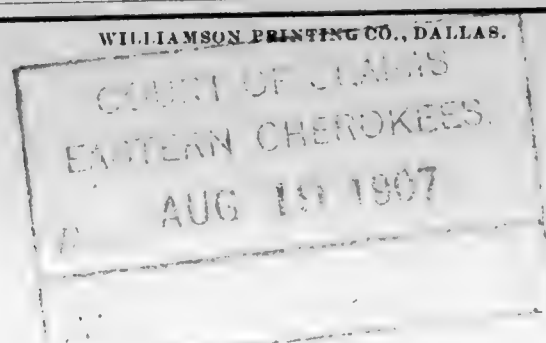 WILLIAMSON PRINTING CO., DALLAS.
COURT OF CLAIMS
EASTERN CHEROKEES.
AUG 1907